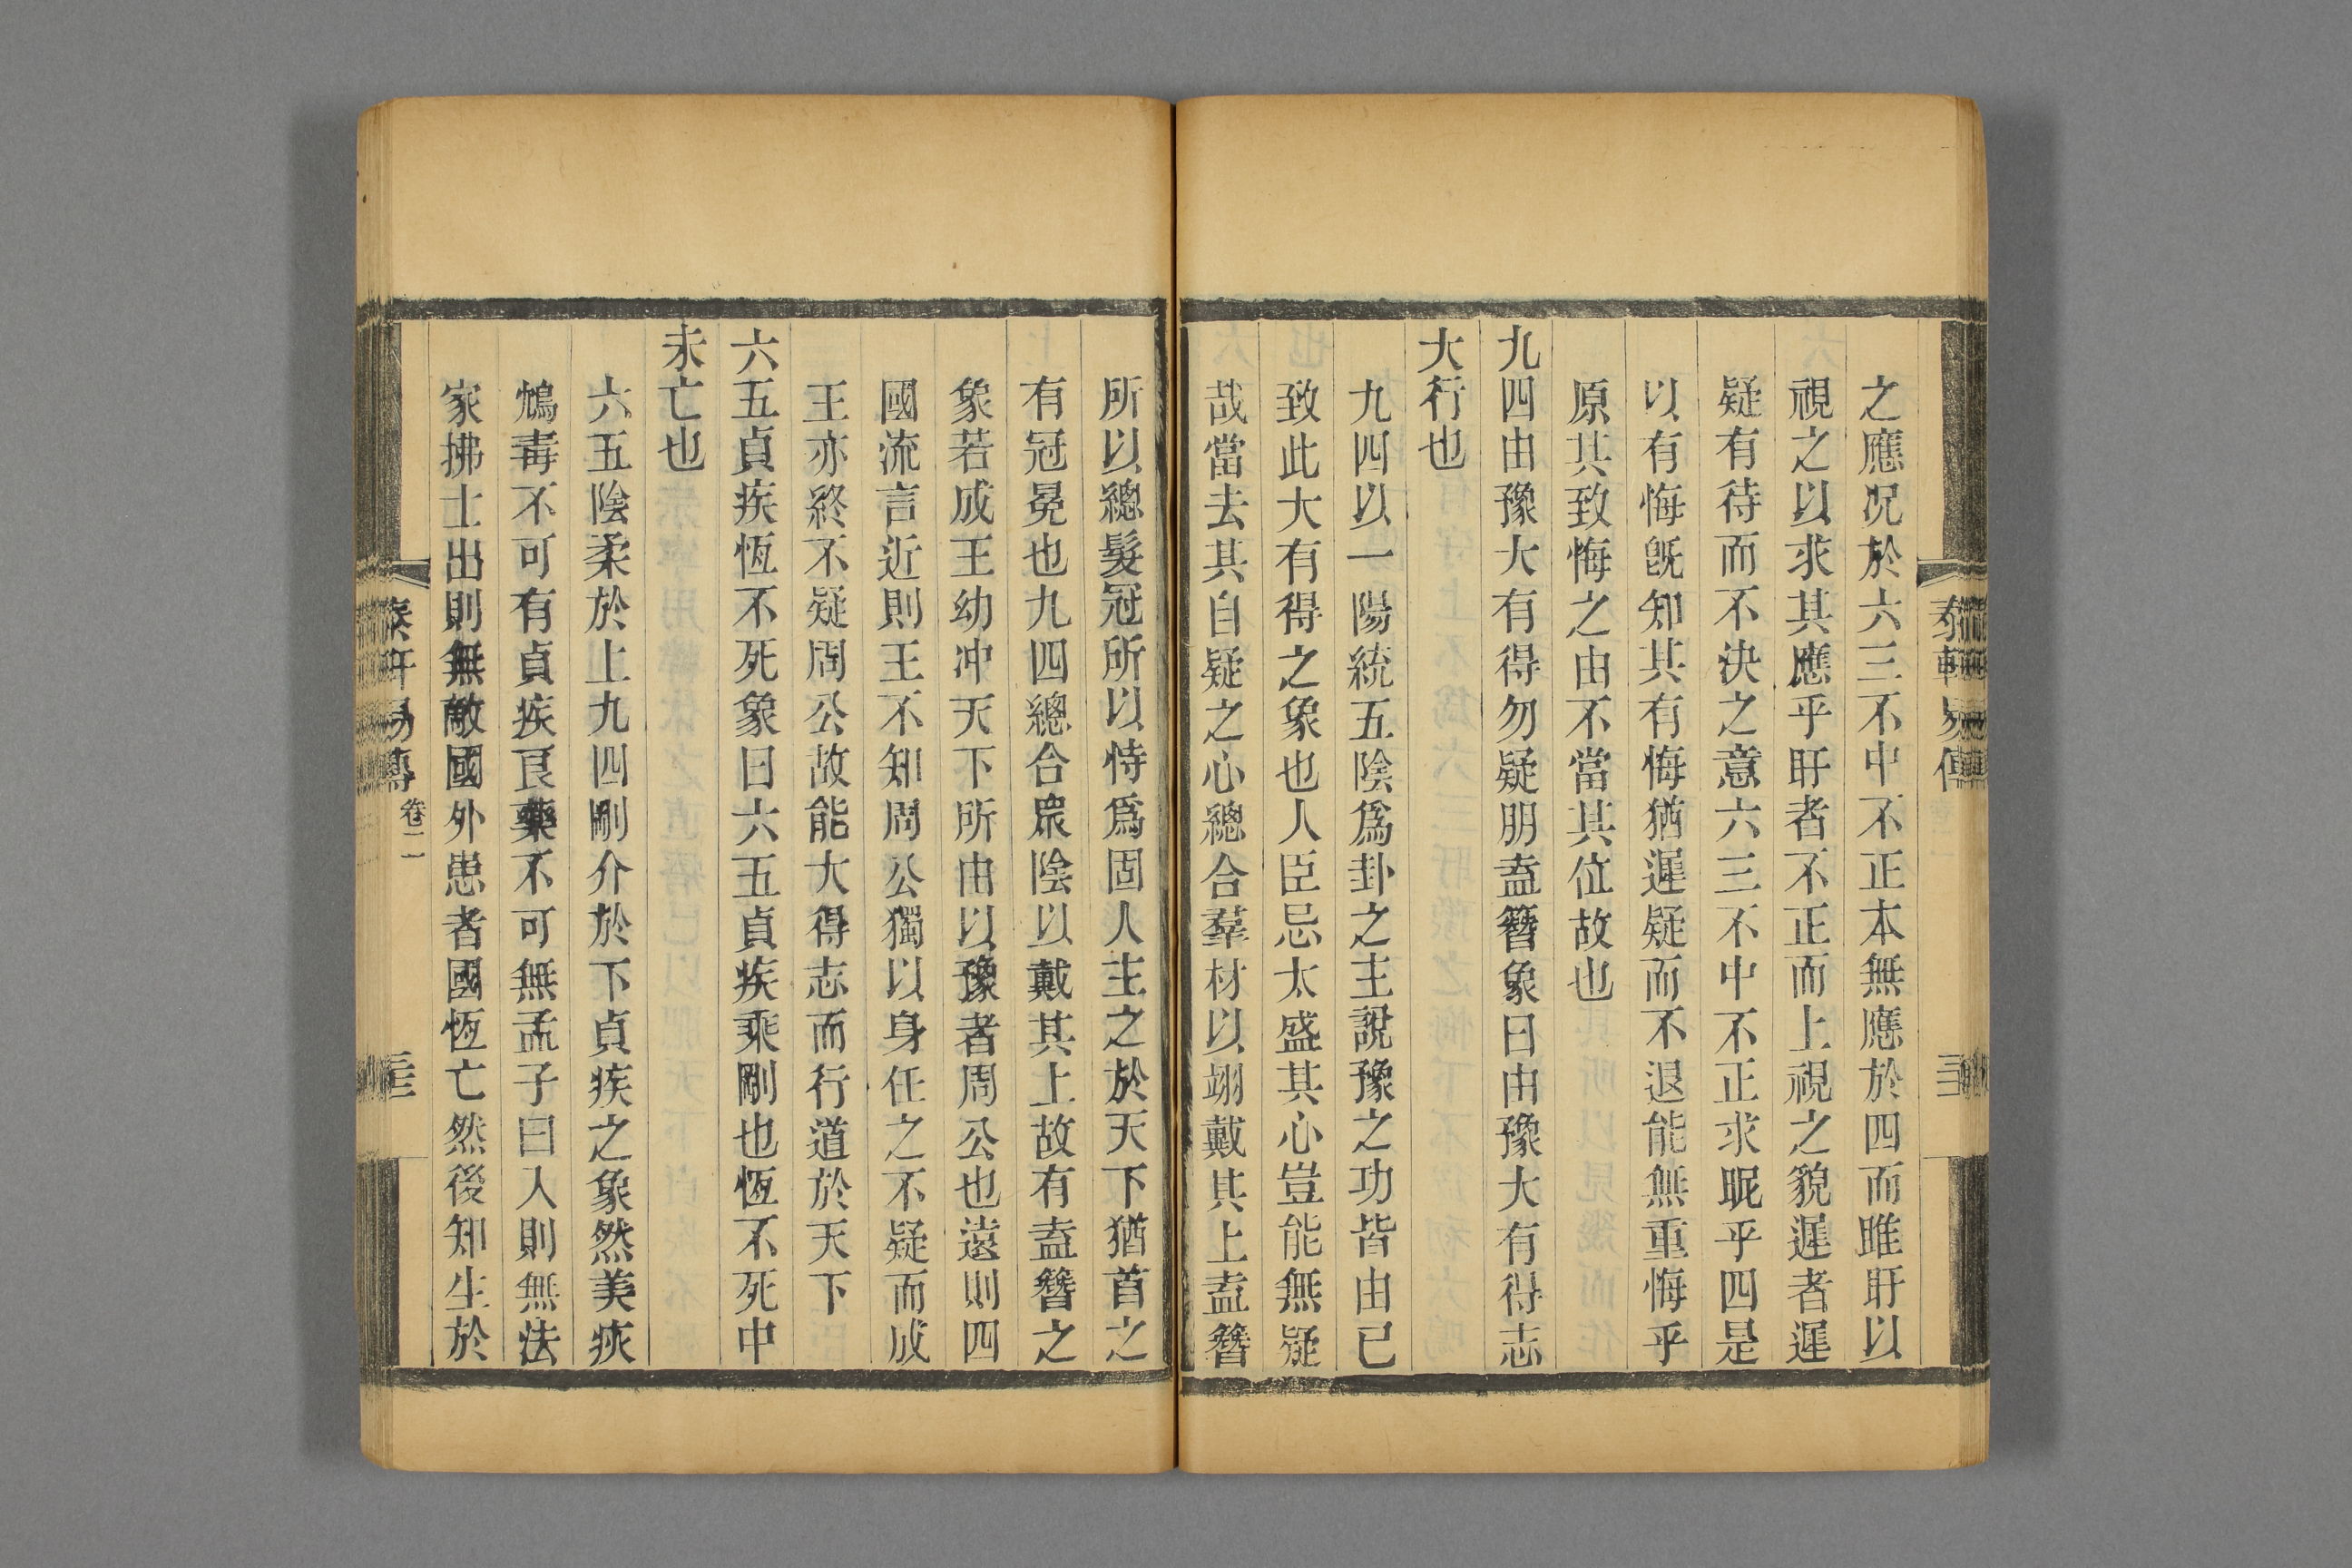 之應况於六三不中不正本無應於四而睢盱以
視之以求其應乎盱者不正而上視之貌遲者遲
疑有待而不決之意六三不中不正求昵乎四是
以有悔旣知其有悔猶遲疑而不退能無重悔乎
原其致悔之由不當其位故也
九四由豫大有得勿疑朋盍簪象曰由豫大有得志
大行也
九四以一陽統五陰爲卦之主說豫之功皆由已
致此大有得之象也人臣忌太盛其心豈能無疑
哉當去其自疑之心總合羣材以翊戴其上盍簪
所以總髮冠所以恃爲固人主之於天下猶首之
有冠冕也九四總合衆陰以戴其上故有盍簪之
象若成王幼冲天下所由以豫者周公也遠則四
國流言近則王不知周公獨以身任之不疑而成
王亦終不疑周公故能大得志而行道於天下
六五貞疾恆不死象曰六五貞疾乘剛也恆不死中
未亡也
六五陰柔於上九四剛介於下貞疾之象然美疢
鴆毒不可有貞疾艮藥不可無孟子曰入則無法
家拂士出則無敵國外患者國恆亡然後知生於
易傳
卷二